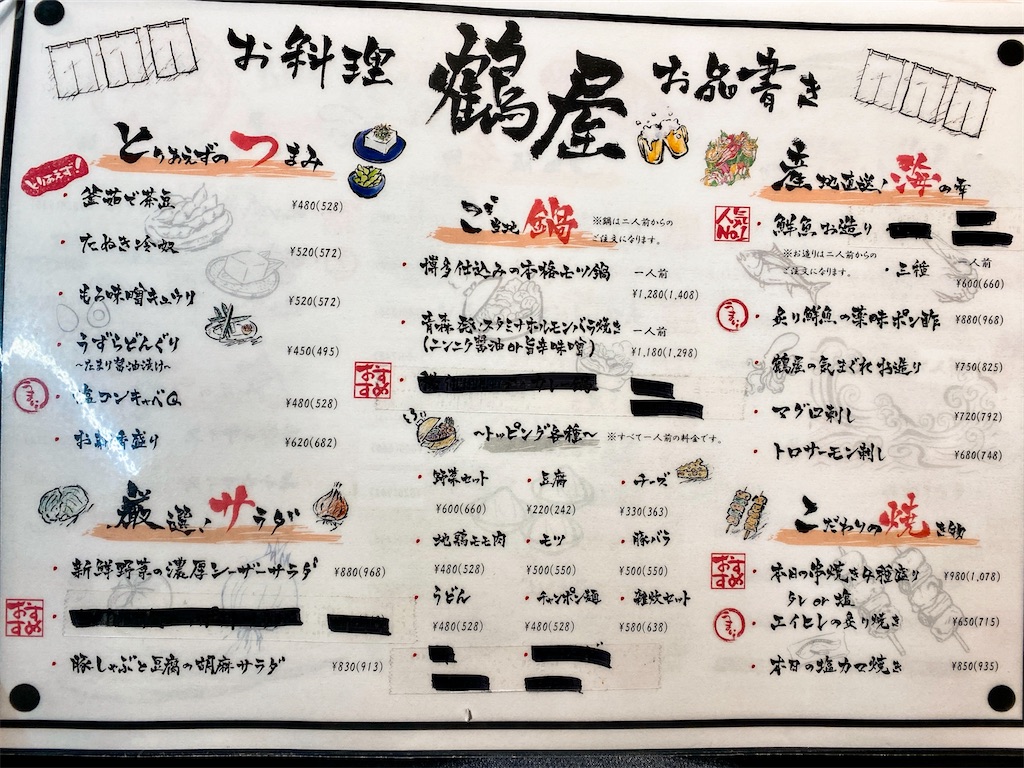 お料理
鶴屋
お品書き
とりあえずのつまみ
とりあえず!
・釜茹で茶豆
¥480(528)
・たぬき冷奴
¥520(572)
・もろ味噌キュウリ
¥520(572)
・うずらどんぐり
~たまり醤油漬け~
¥450(495)
うまい
・塩コンキャベQ
¥480(528)
・お新香盛り
¥620(682)
厳選!サラダ
・新鮮野菜の濃厚シーザーサラダ
¥880(968)
おすすめ
・豚しゃぶと豆腐の胡麻サラダ
¥830(913)
ご当地鍋
※鍋は二人前からの
ご注文になります。
・博多仕込みの本格モツ鍋
一人前
¥1,280(1,408)
・青森 スタミナホルモンバラ焼き
(ニンニク醤油or旨辛味噌)
一人前
¥1,180(1,298)
おすすめ
~トッピング各種~
※すべて一人前の料金です。
・野菜セット
・豆腐
・チーズ
¥600(660)
¥220(242)
¥330(363)
・地鶏モモ肉
・モツ
・豚バラ
¥480(528)
¥500(550)
¥500(550)
・うどん
・チャンポン麺
・雑炊セット
¥480(528)
¥480(528)
¥580(638)
産地直送!海の幸
人気
No.1
・鮮魚お造り
※お造りは二人前からの
ご注文になります。
・三種
一人前
¥600(660)
うまい
・炙り鮮魚の薬味ポン酢
¥880(968)
・鶴屋の気まぐれお造り
¥750(825)
・マグロ刺し
¥720(792)
・トロサーモン刺し
¥680(748)
こだわりの焼き物
おすすめ
・本日の串焼き4種盛り
タレor塩
¥980(1,078)
うまい
・エイヒレの炙り焼き
¥650(715)
・本日の塩カマ焼き
¥850(935)